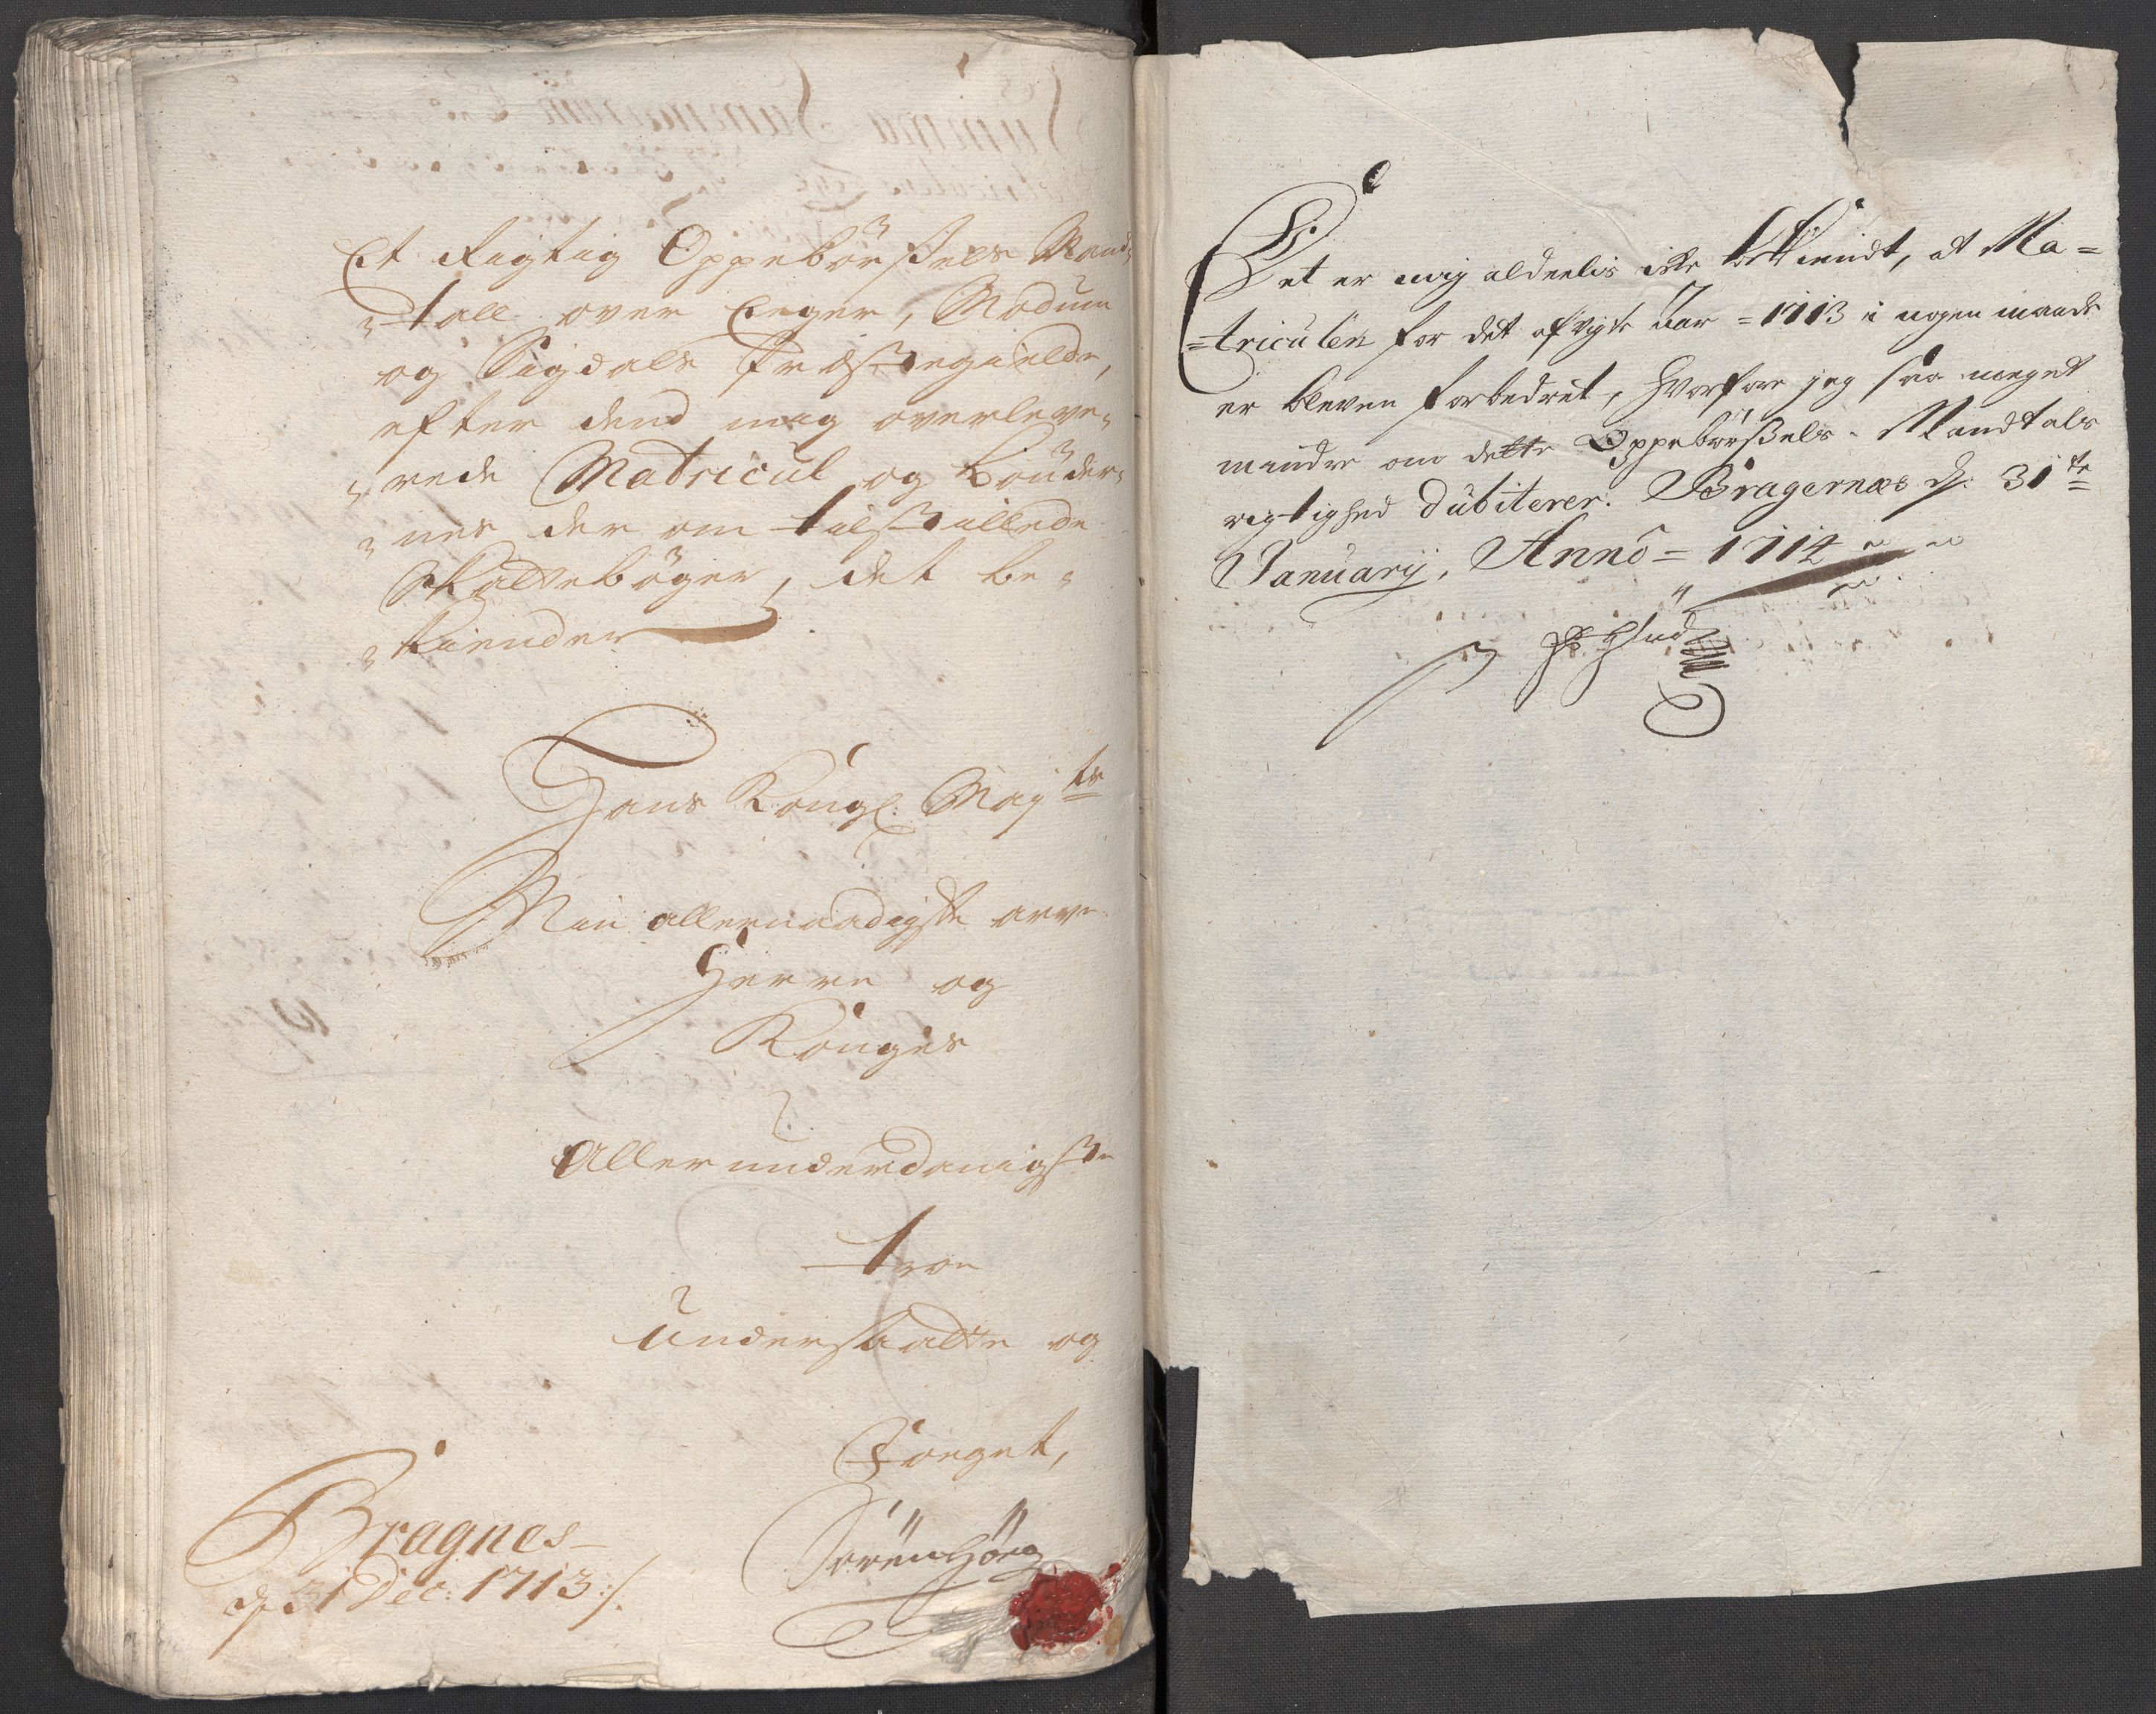 Et Rigtig Oppebørßels Mand-
-tall over Eeger, Modum
og Sigdals Præstegielde,
efter dend mig overleve-
-rede Matricul og Bønder-
-nes der om tilstillede
Skattebøger, det be-
-kiender
Hans Kongl: Maj^ts
Min allernaadigste arve
Herre og
Konges
Allerunderdanigste
troe
Undersaatte og
Foeget,
Bragnes
d. 31 Dec: 1713 :/.
Sørren
Det er mig aldeelis icke bekiendt, at Ma=
=triculen for det afvigte Aar = 1713 i nogen maade
er bleven forbedret, hvorfore jeg saa meget
mindre om dette Oppebørßels-Mandtals
rigtighed dubiterer. Bragernæs d. 31^te
Januarij, Anno = 1714